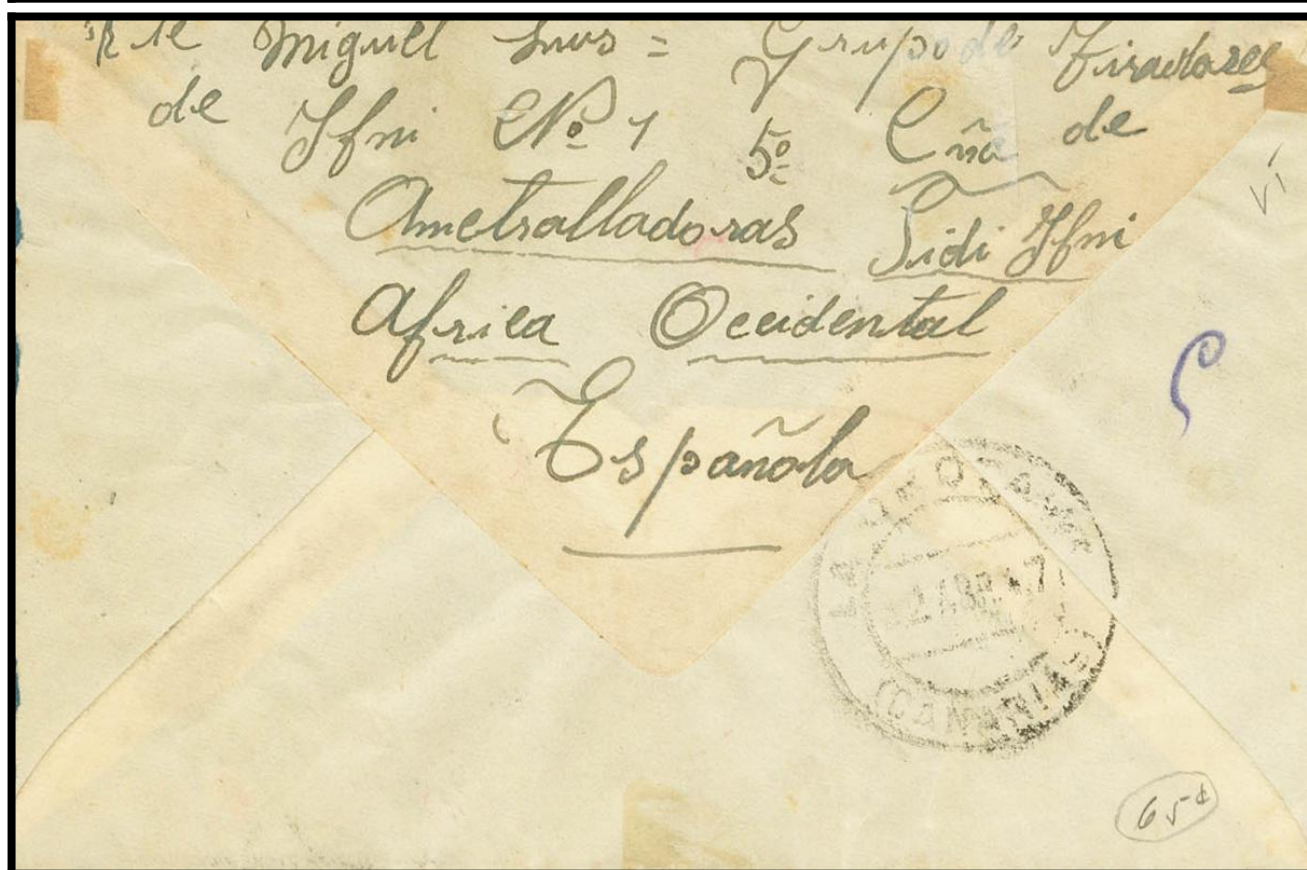 Rte Miguel = Grupo de Tiradores
de Ifni Nº 1 5º Cñia de
Ametralladoras Sidi Ifni
Africa Occidental
Española
LA OROTAVA
2 ABR 47
(CANARIAS)
65¢